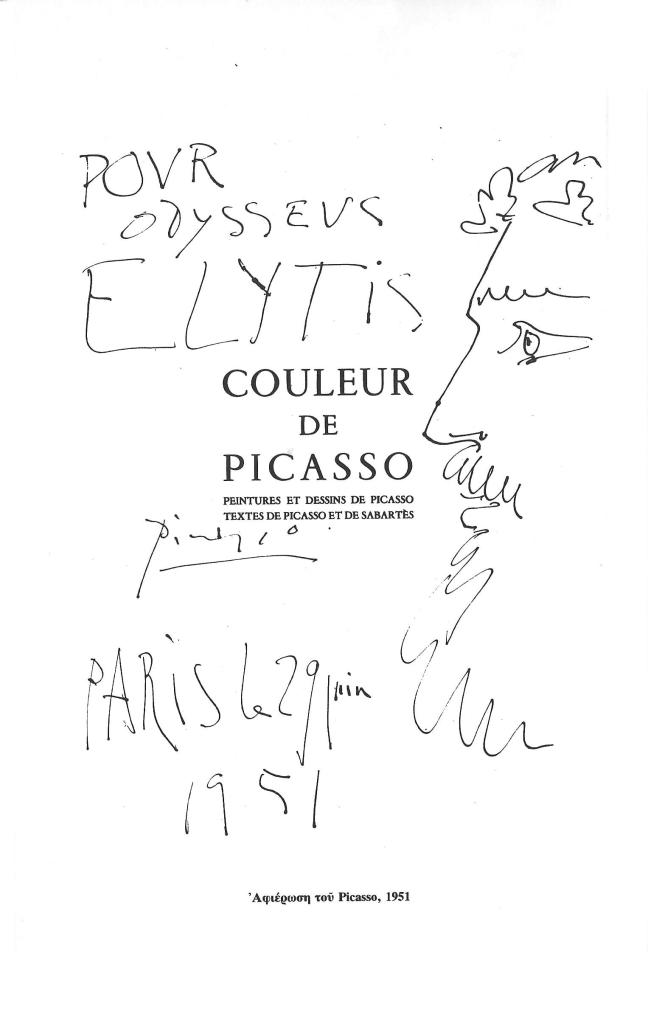 POUR
ODYSSEUS
ELYTIS
COULEUR
DE
PICASSO
PEINTURES ET DESSINS DE PICASSO
TEXTES DE PICASSO ET DE SABARTÈS
Picasso
PARIS le 29 juin
1951
Ἀφιέρωση τοῦ Picasso, 1951